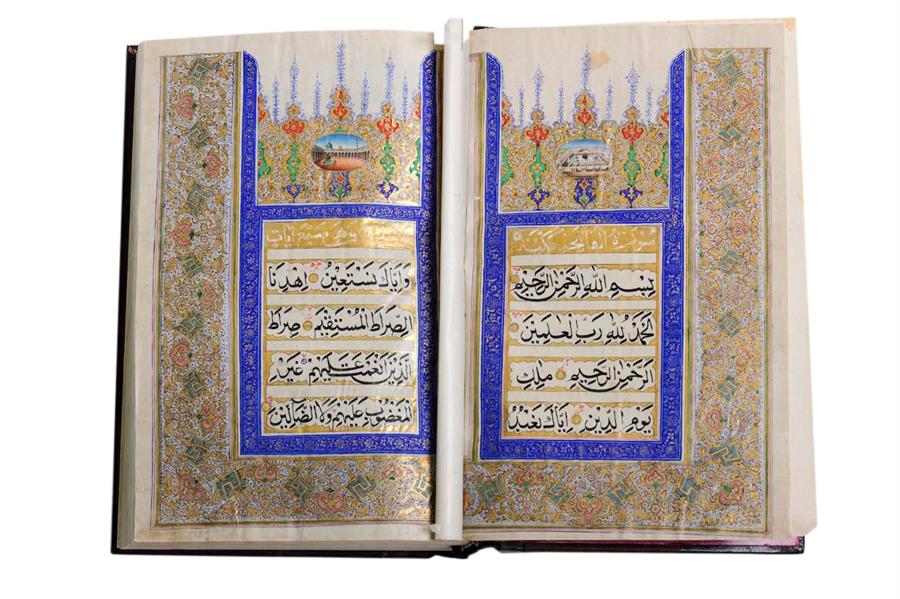 سورة الفاتحة مكية
بِسْمِ اللهِ الرَّحْمٰنِ الرَّحِيْمِ
اَلْحَمْدُ لِلّٰهِ رَبِّ الْعٰلَمِيْنَ
الرَّحْمٰنِ الرَّحِيْمِ مٰلِكِ
يَوْمِ الدِّيْنِ اِيَّاكَ نَعْبُدُ
وهي سبع آيات
وَاِيَّاكَ نَسْتَعِيْنُ اِهْدِنَا
الصِّرَاطَ الْمُسْتَقِيْمَ صِرَاطَ
الَّذِيْنَ اَنْعَمْتَ عَلَيْهِمْ غَيْرِ
الْمَغْضُوْبِ عَلَيْهِمْ وَلَا الضَّآلِّيْنَ